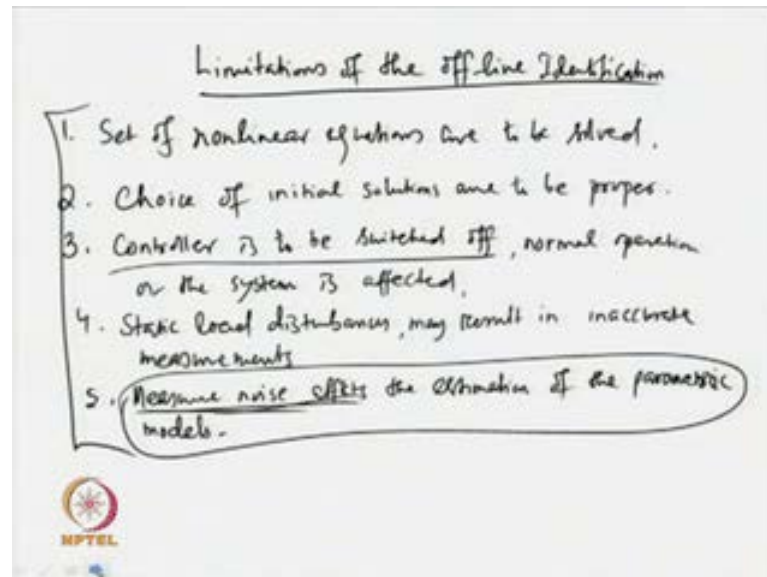 Limitations of the off-line Identification
1. Set of nonlinear equations are to be solved.
2. Choice of initial solutions are to be proper.
3. Controller is to be switched off, normal operation
or the system is affected.
4. Static load disturbances, may result in inaccurate
measurements
5. Measure noise effects the estimation of the parametric
models.
NPTEL